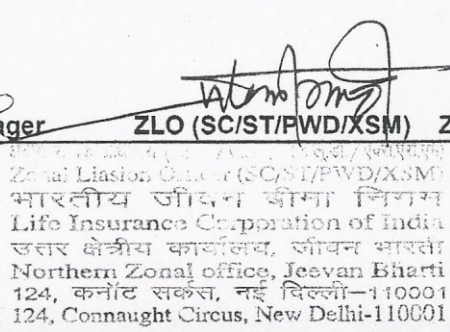 ager ZLO (SC/ST/PWD/XSM) Z
Zonal Liasion Officer (SC/ST/PWD/XSM)
भारतीय जीवन बीमा निगम
Life Insurance Corporation of India
उत्तर क्षेत्रीय कार्यालय, जीवन भारती
Northern Zonal office, Jeevan Bharti
124, कनॉट सर्कस, नई दिल्ली-110001
124, Connaught Circus, New Delhi-110001